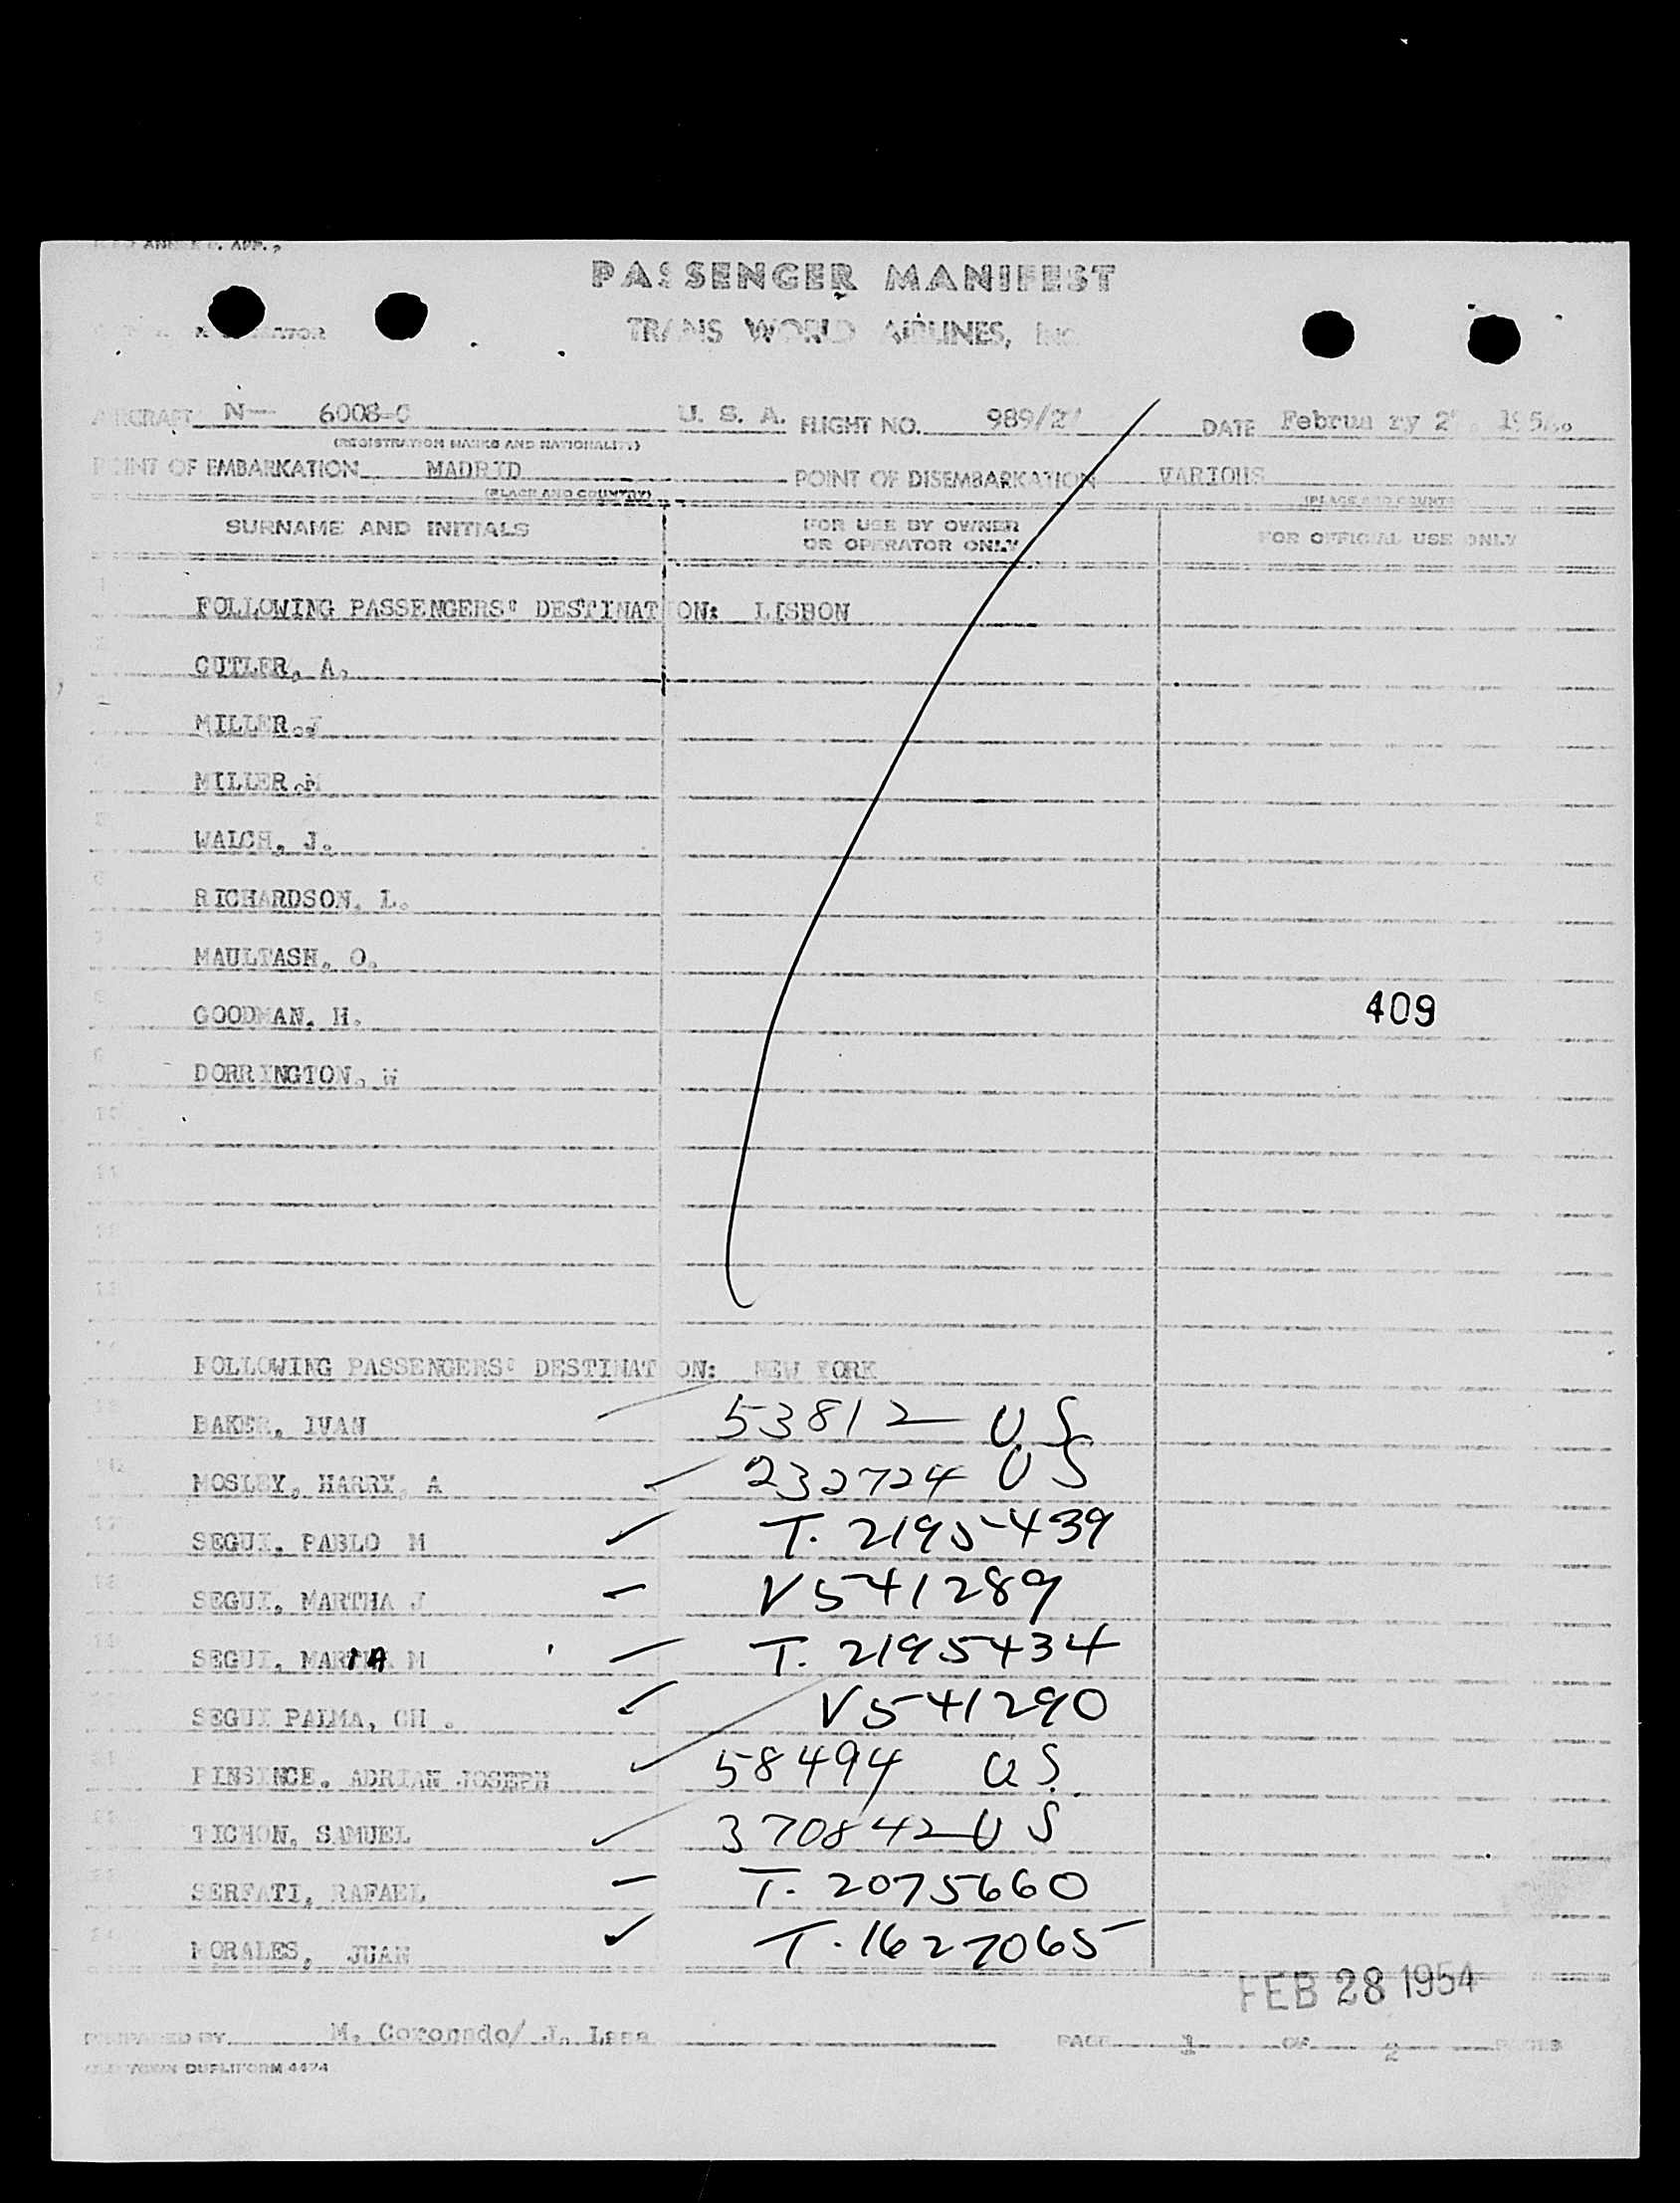 PASSENGER MANIFEST
TRANS WORLD AIRLINES, INC
AIRCRAFT N- 6008-C U. S. A. FLIGHT NO. 989/2 DATE February 2
(REGISTRATION MARKS AND NATIONALITY)
POINT OF EMBARKATION MADRID POINT OF DISEMBARKATION VARIOUS
(PLACE AND COUNTRY) (PLACE AND COUNTRY
SURNAME AND INITIALS FOR USE BY OWNER OR OPERATOR ONLY FOR OFFICIAL USE ONLY
FOLLOWING PASSENGERS' DESTINATION: LISBON
CUTLER, A.
MILLER.J
MILLER.M
WALCH, J.
RICHARDSON, L.
MAULTASH, O.
GOODMAN, H. 409
DORRINGTON, W
10
11
12
13
FOLLOWING PASSENGERS' DESTINATION: NEW YORK
BAKER, IVAN 53812 U.S.
MOSLEY, HARRY, A 232724 US
SEGUI, PABLO M T. 2195439
SEGUI, MARTHA J V541289
SEGUI, MARIA M T. 2195434
SEGUI PALMA, CH . V541290
PINSINCE, ADRIAN JOSEPH 58494 U.S.
TICHON, SAMUEL 370842 US
SERFATI, RAFAEL T. 2075660
MORALES, JUAN T. 1627065
FEB 28 1954
PREPARED BY M. Coronado/ J. Lasa PAGE 1 OF 2 PAGES
OLD TOWN DUPLIFORM 4474